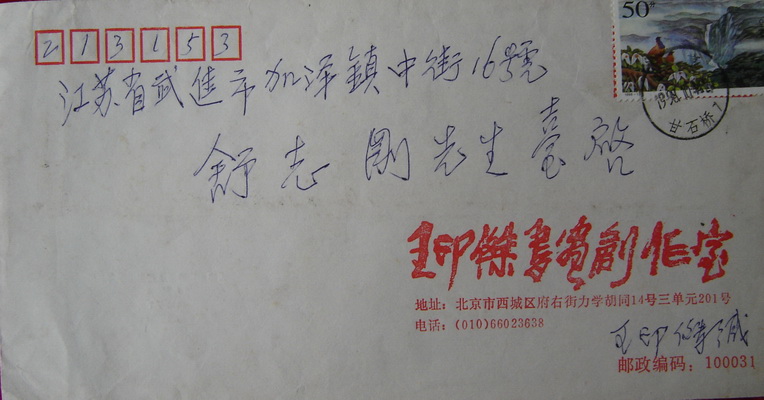 213153
50分
江苏省武進市加泽鎮中街16號
1998.
甘石桥1
舒志剛先生臺啓
王印傑書賓創作室
地址：北京市西城区府右街力学胡同14号三单元201号
电话：(010)66023638
王印傑缄
邮政编码：100031